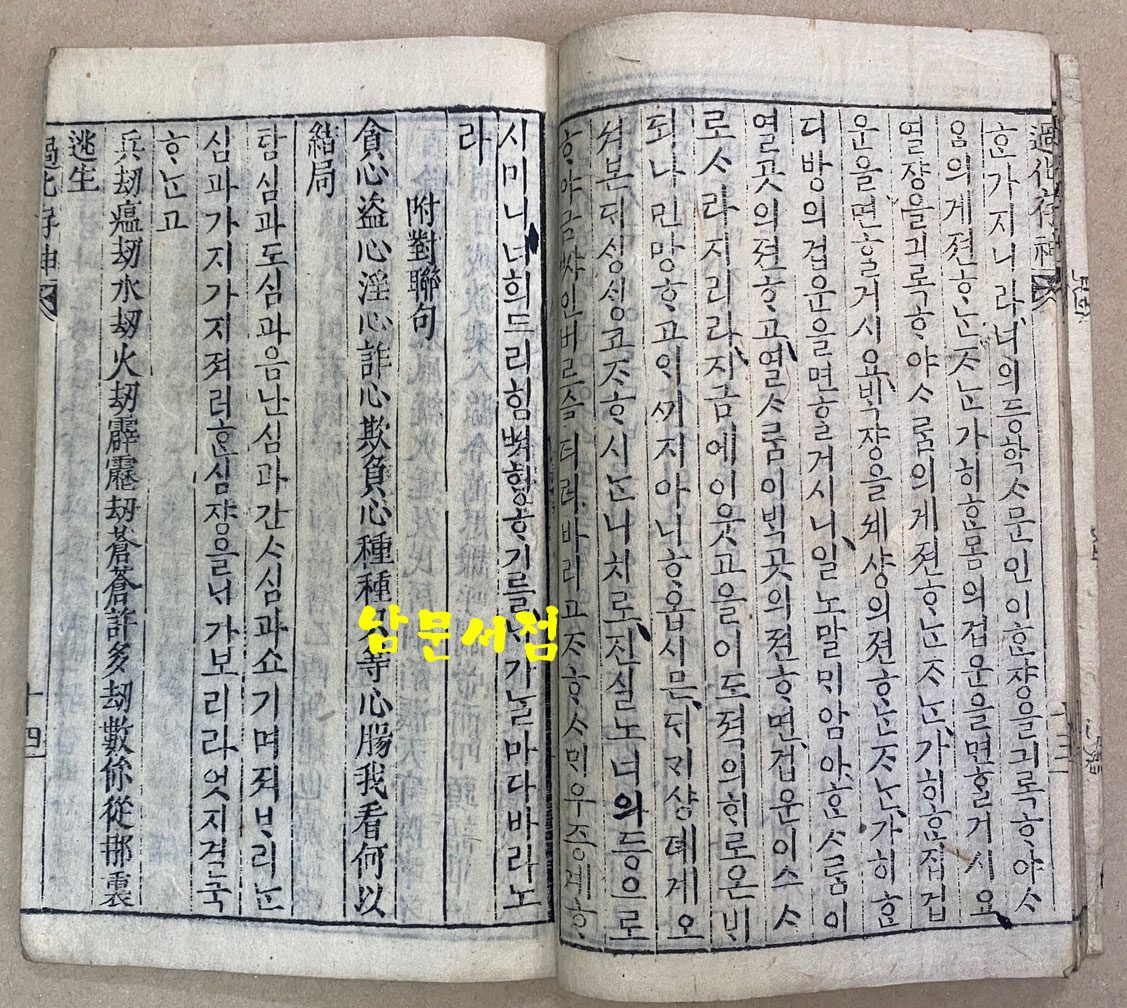 過化存神 十三
ᄒᆞᆫ가지니라너의등학ᄉᆞ문인이ᄒᆞᆫ쟝을긔록ᄒᆞ야ᄉᆞ
ᄅᆞᆷ의게젼ᄒᆞᄂᆞᆫᄌᆞᄂᆞᆫ가히ᄒᆞᆫ몸의겁운을면ᄒᆞᆯ거시요
열쟝을긔록ᄒᆞ야ᄉᆞᄅᆞᆷ의게젼ᄒᆞᄂᆞᆫᄌᆞᄂᆞᆫ가히ᄒᆞᆫ집겁
운을면ᄒᆞᆯ거시요ᄇᆡᆨ쟝을셰샹의젼ᄒᆞᄂᆞᆫᄌᆞᄂᆞᆫ가히ᄒᆞᆫ
디방의겁운을면ᄒᆞᆯ거시니일노말ᄆᆡ암아ᄒᆞᆫᄉᆞᄅᆞᆷ이
열곳의젼ᄒᆞ고열ᄉᆞᄅᆞᆷ이ᄇᆡᆨ곳의젼ᄒᆞ면겁운이스ᄉᆞ
로ᄉᆞ라지리라지금에이웃고을이도젹의ᄒᆡ로온ᄇᆡ
되나민망ᄒᆞ고ᄭᅵ지아니ᄒᆞ옵시믄ᄃᆡᄀᆡ샹뎨게오
셔본ᄃᆡᄉᆡᆼᄉᆡᆼ코ᄌᆞᄒᆞ시ᄂᆞᆫ니치로진실노너의등으로
ᄒᆞ야금쟈인버르슬더러바리고ᄌᆞᄒᆞᄉᆞᄆᆡ우증계ᄒᆞ
시미니너희드리힘ᄡᅥᄒᆡᆼᄒᆞ기를ᄂᆡ가날마다바라노
라
附對聯句
貪心盗心淫心詐心欺負心種種等心膓我看何以
結局
탐심과도심과음난심과간ᄉᆞ심과쇼기며져ᄇᆞ리ᄂᆞᆫ
심과가지가지져러ᄒᆞᆫ심쟝을ᄂᆡ가보리라엇지결국
ᄒᆞᄂᆞᆫ고
兵刼瘟刼水刼火刼霹靂刼蒼蒼許多刼數你從那裏
逃生
過化存神 十四
남문서점